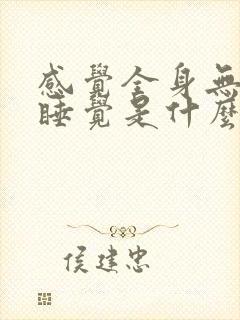 感覺全身無
睡覺是什麼
侯建忠